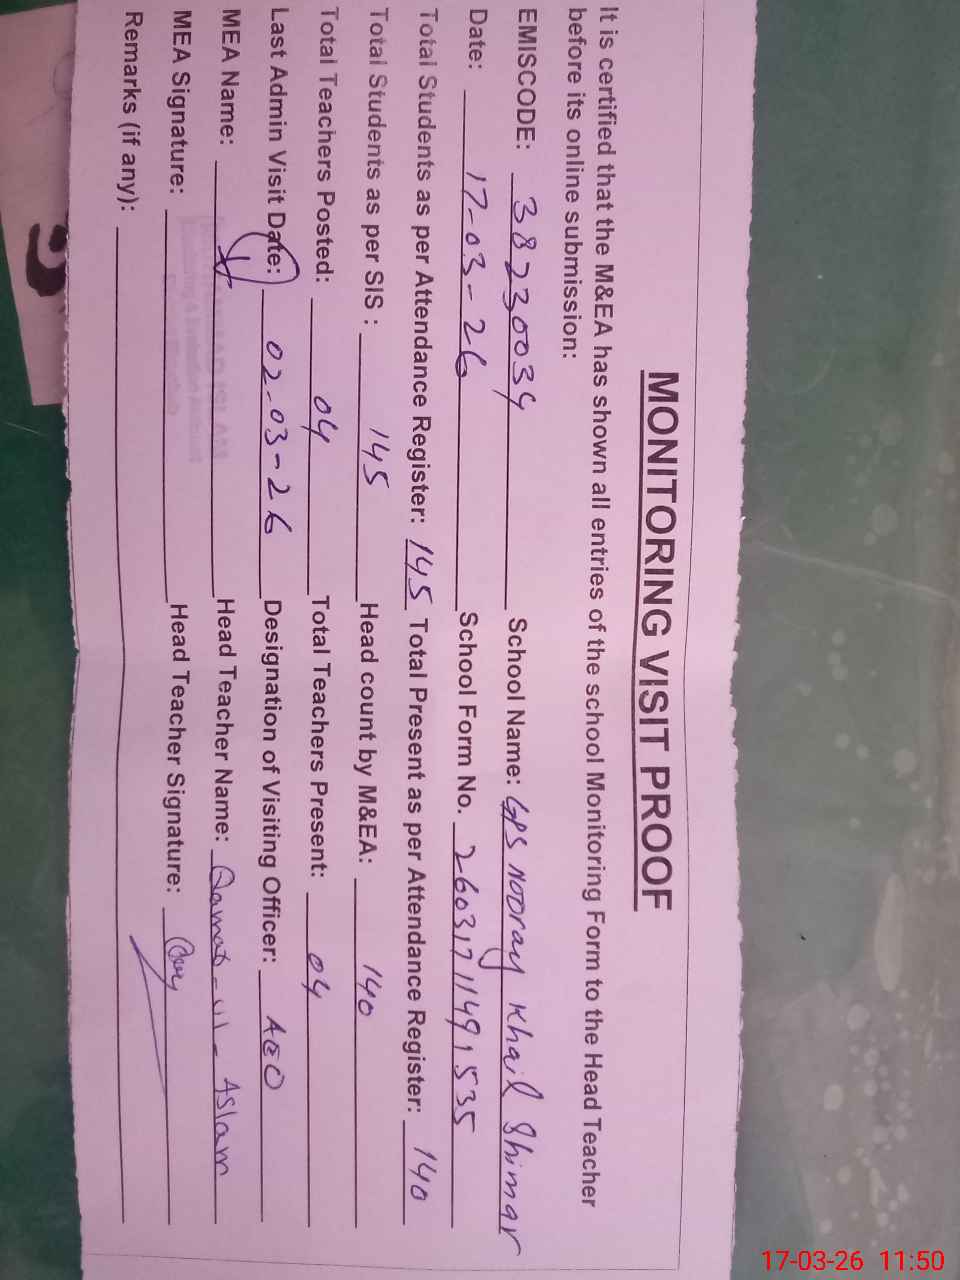 MONITORING VISIT PROOF
It is certified that the M&EA has shown all entries of the school Monitoring Form to the Head Teacher
before its online submission:
EMISCODE: 38230034 School Name: GPS NOOray Khail Shimar
Date: 17-03-26 School Form No. 26031711491535
Total Students as per Attendance Register: 145 Total Present as per Attendance Register: 140
Total Students as per SIS : 145 Head count by M&EA: 140
Total Teachers Posted: 04 Total Teachers Present: 04
Last Admin Visit Date: 02-03-26 Designation of Visiting Officer: AEO
MEA Name: Head Teacher Name: Qamar-ul-Aslam
MEA Signature: Head Teacher Signature:
Remarks (if any):
17-03-26 11:50